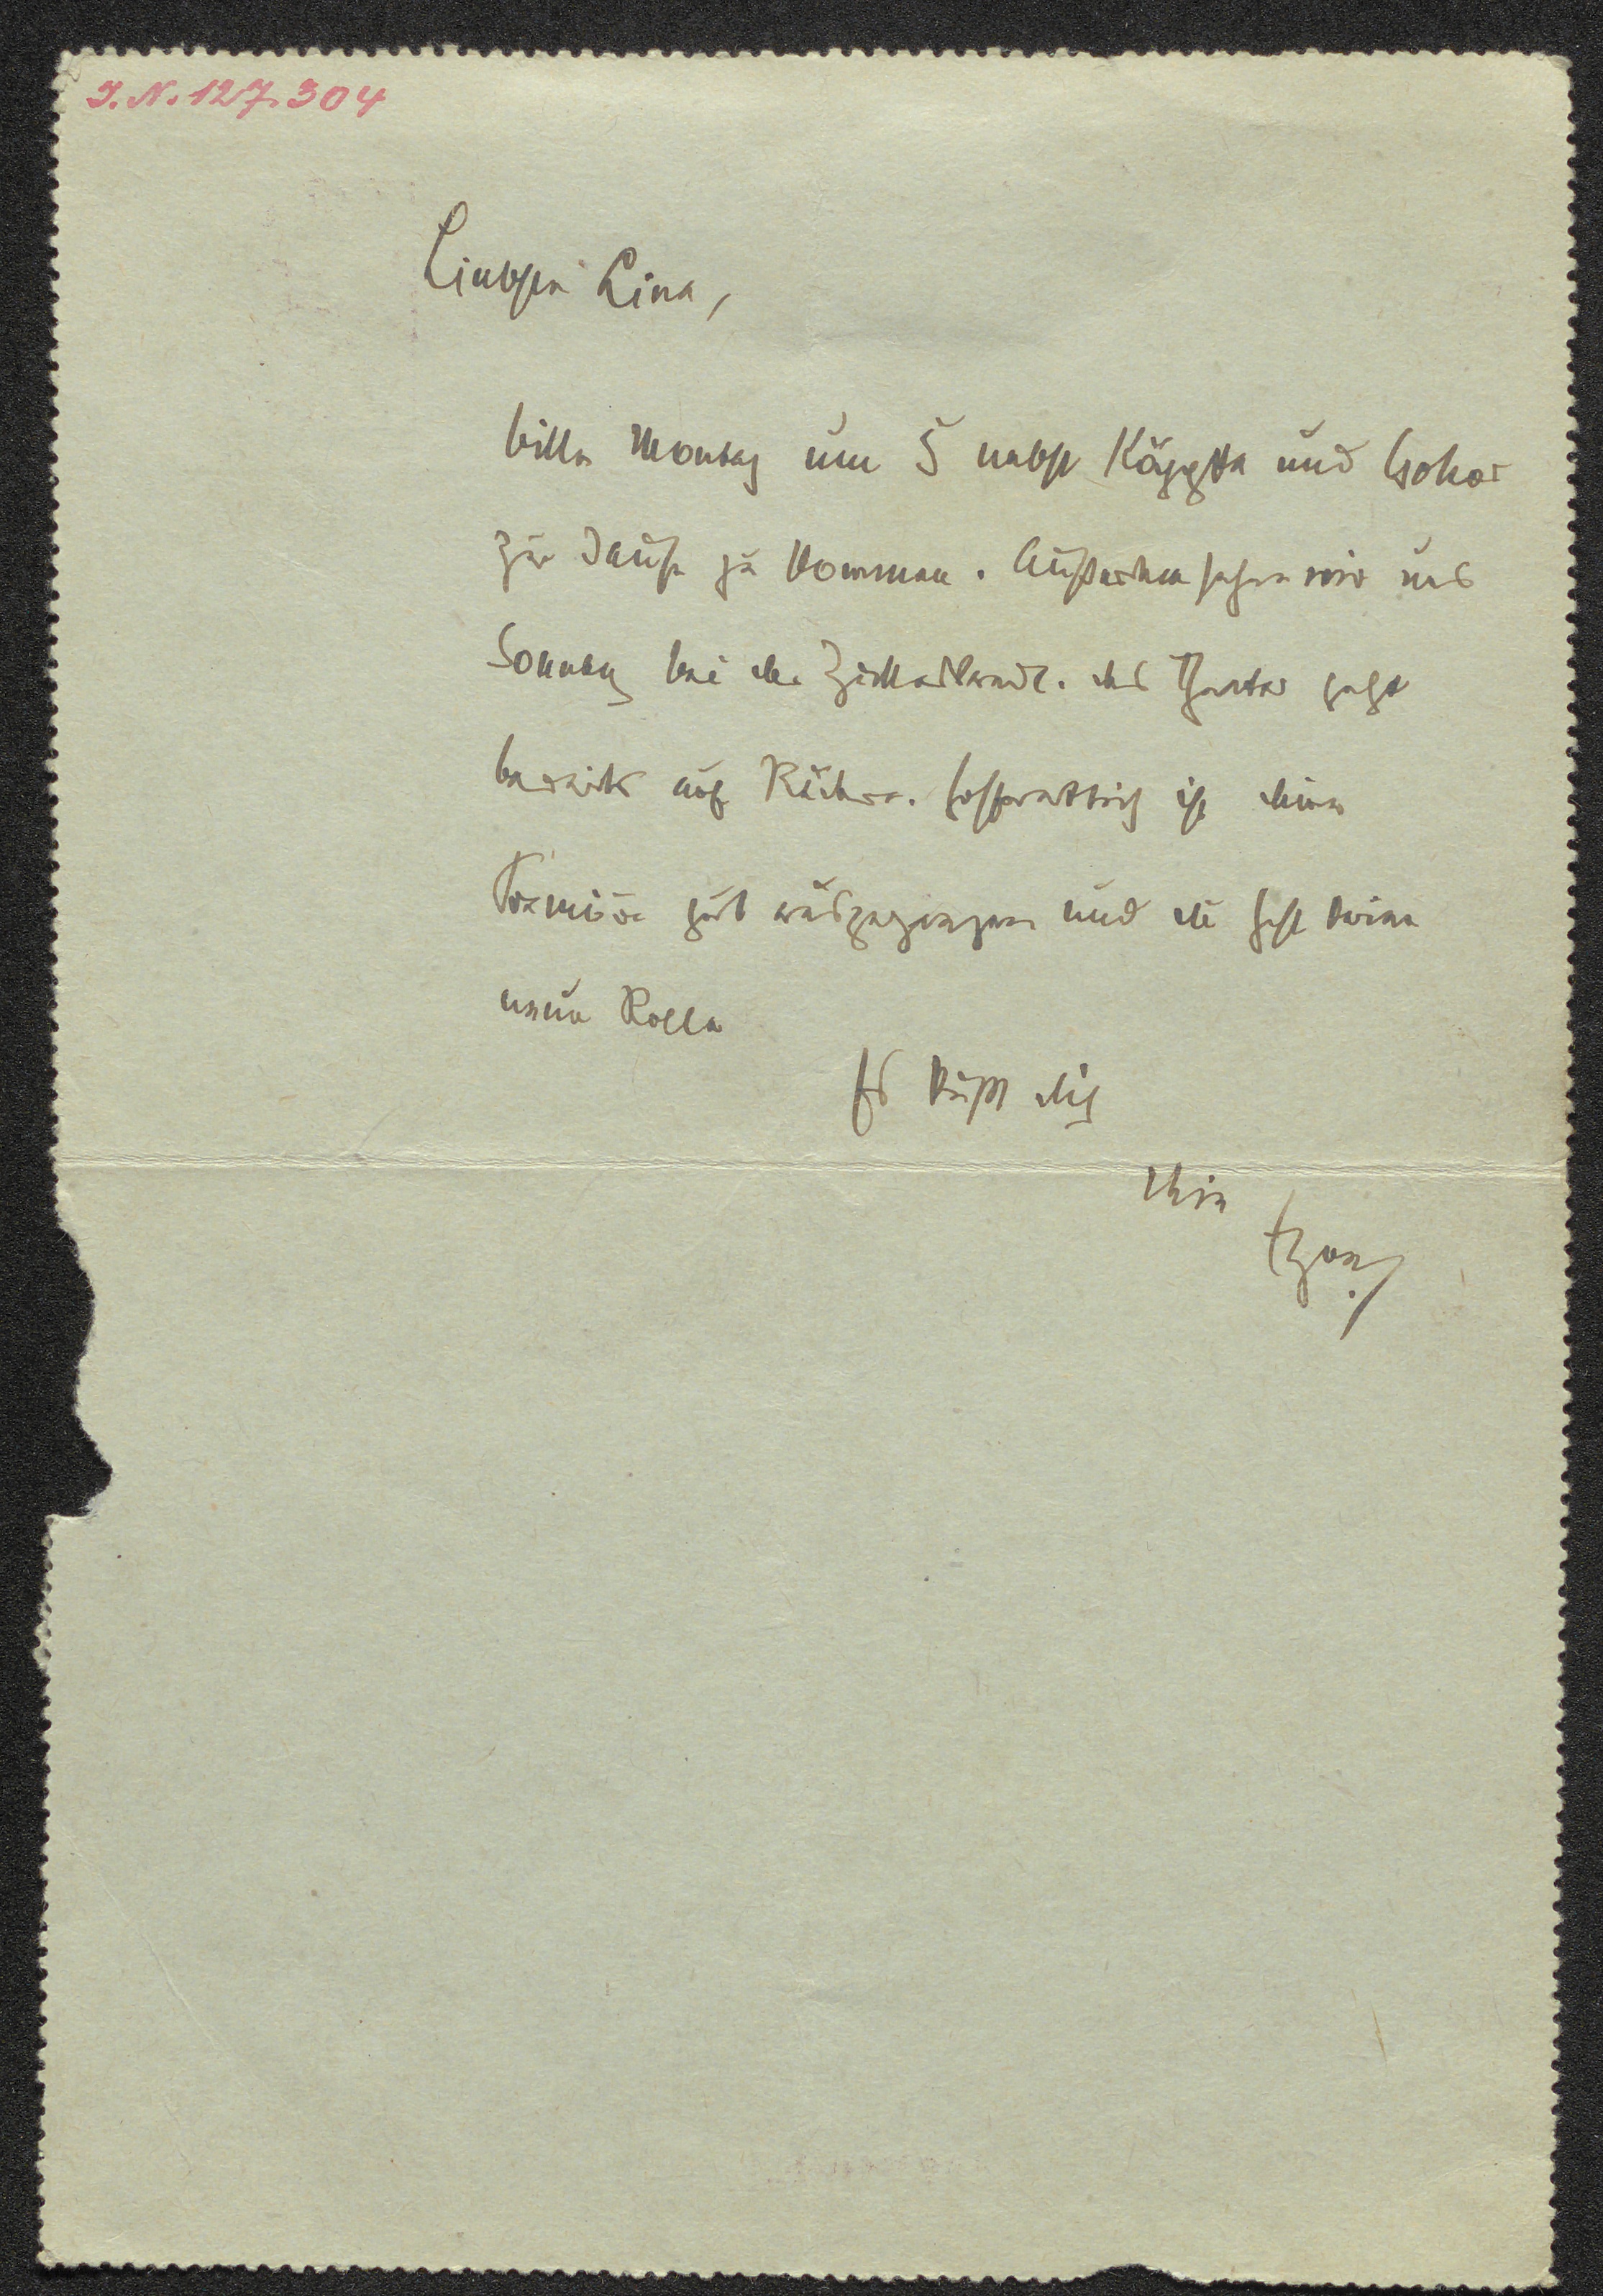 I.N. 127.304
Liebste Lina,
bitte Montag um 5 nebst und Csokor
zur Jause zu kommen. Außerdem sehen wir uns
Sonntag bei der Zuckerkandl. das Theater geht
bereits auf Rädern. hoffentlich ist deine
Première gut ausgegangen und du hast keine
neue Rolle
Es küßt dich
dein
Egon